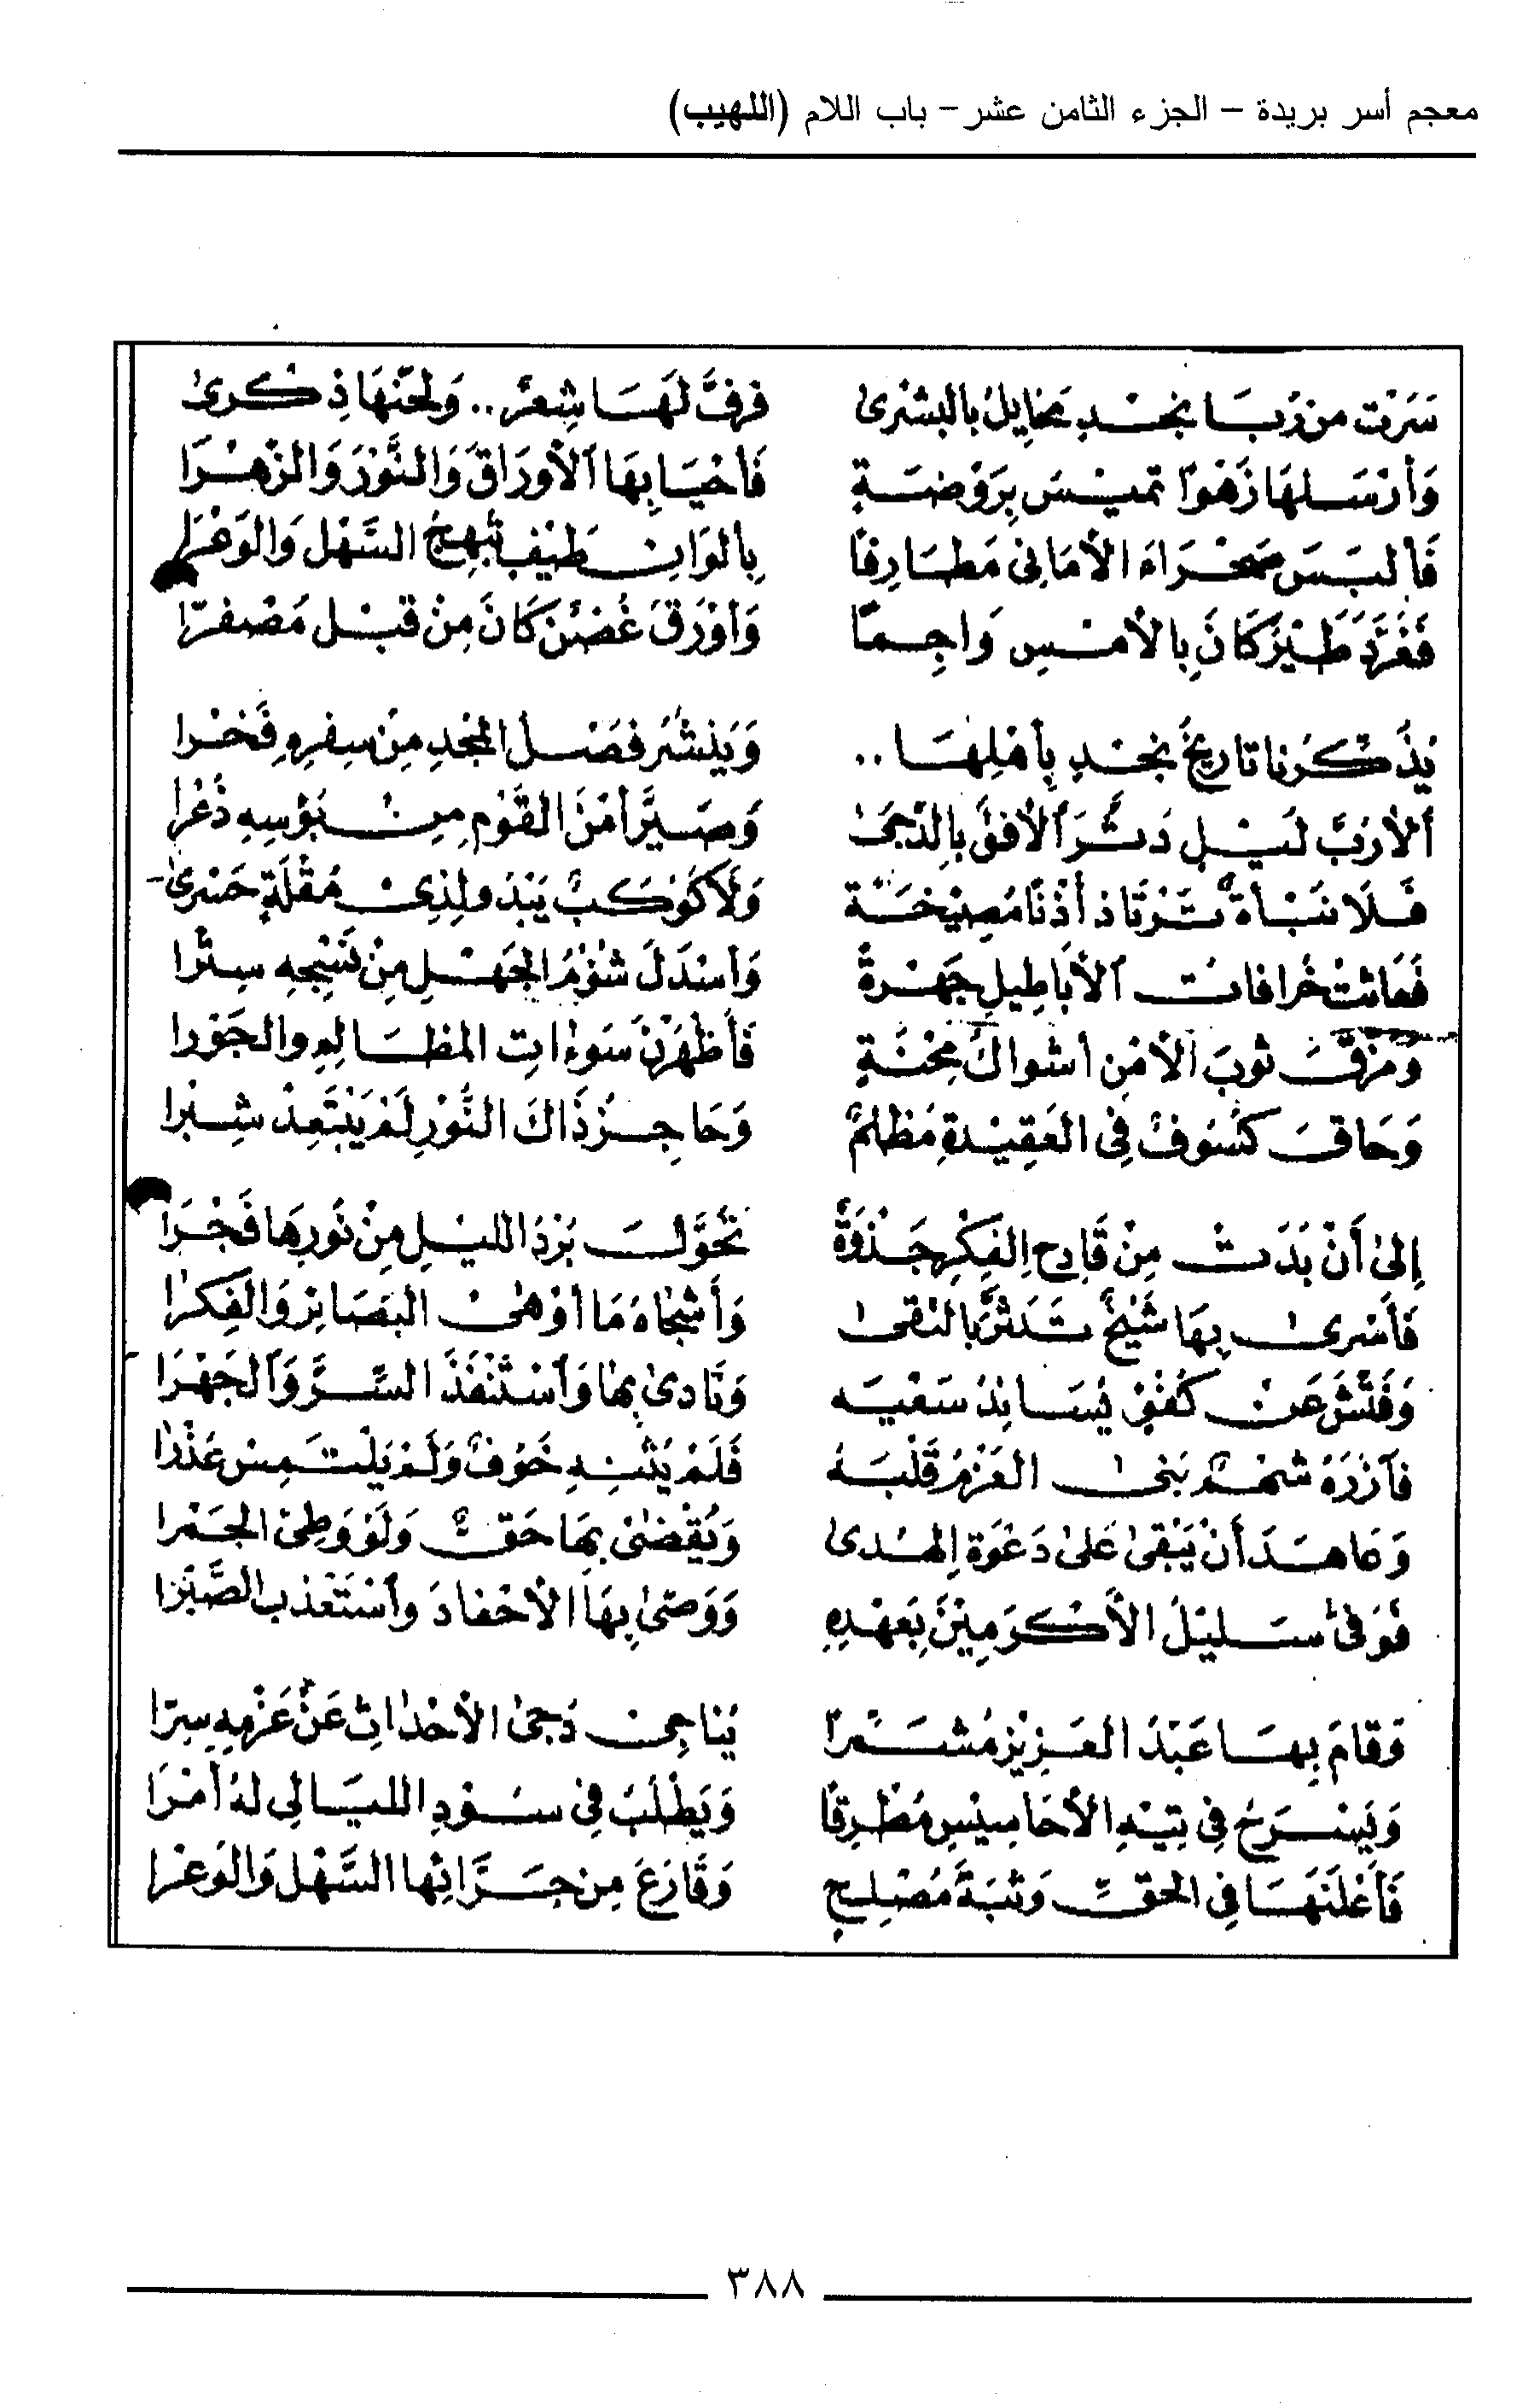 معجم أسر بريدة – الجزء الثامن عشر – باب اللام (اللهيب)
سَرَتْ من رُبَا نجْدٍ مخايِلُ بالبُشْرىٰ فرفَّ لَهَا شِعْرٌ .. وَلحَّنَهَا ذِكْرىٰ
وَأرْسَلهَا زَهْوًا تميْسُ بِرَوْضَةٍ فَأحْيَا بِهَا ٱلأوْرَاقَ وَالنَّوْرَ وَالزَّهْرَا
فَألبَسَ صَحْرَاءَ الأمَانِيْ مَطَارِفًا بِالوَانِ طَيْفٍ تُبْهِجُ السَّهْلَ وَالوَعْرَا
فَغَرَّدَ طَيْرٌ كَانَ بِالأمْسِ وَاجِمًا وَأوْرَقَ غُصْنٌ كَانَ مِنْ قبْلُ مُصْفرّا
يُذَكِّرُنا تاريخُ نجْدٍ بِأهْلِهَا .. وَيَنشُرُ فصْلُ المجْدِ مِنْ سِفرِهِ فَخْرا
ألا رُبَّ لَيْلٍ دَثَّرَ ٱلأفقَ بالدُّجَىٰ وَصَيَّرَ أمْنَ القَوْمِ مِنْ بُؤْسِهِ ذُعْرا
فَلا نَبْأةٌ تَرْتَادُ أذْنًا مُصِيْخَةً وَلَا كَوْكَبٌ يَبْدُو لِذِيْ مُقْلَةٍ حَسْرىٰ
فَعَاثتْ خُرافاتُ ٱلأبَاطِيلِ جَهْرةً وَأسْدَلَ شؤْمُ الجَهْلِ مِنْ نَسْجِهِ سِتْرا
وَمزَّقَتْ ثوبَ ٱلأمْنِ أشواكُ مِحْنَةٍ فَأظهَرْنَ سَوءاتِ المظَالِمِ والجَوْرا
وَحَاقَ كسُوفٌ فِي العَقِيْدَةِ مُظلمٌ وَحَاجِزُ ذَاكَ النُّوْرِ لَمْ يَبْتَعِدْ شِبْرا
إِلىٰ أَنْ بَدَتْ مِنْ قَادِحِ الفِكْرِ جَذْوَةٌ تَحَوَّلَ بَرْدُ الليْلِ مِنْ نَورِهَا فَجْرَا
فَأسْرىٰ بِهَا شَيْخٌ تَدَثَّرَ بالتقىٰ وَأشْجَاهُ مَا أوْهَىٰ البَصَائِرَ وَالفِكرَا
وَفَتَّشَ عَنْ كُفْءٍ يُسَانِدُ سَعْيَه وَنَادىٰ بِهَا وَٱسْتَنْفَذَ السِّرَّ وَٱلجَهْرَا
فآزَرَهُ شهْمٌ بَنىٰ العَزْمُ قَلْبَهُ فَلَمْ يَثْنِهِ خَوْفٌ وَلَمْ يَلْتَمِسْ عُذْرًا
وَعَاهَدَ أنْ يَبْقىٰ عَلىٰ دَعْوَةِ الهُدىٰ وَيُقْضَىٰ بِهَا حَقٌّ وَلَوْ وَطِئَ الجَمْرا
فَوَفىٰ سَلِيْلُ الأَكْرَمِيْنَ بِعَهْدِهِ وَوَصىٰ بِهَا الأحْفادَ وٱسْتَعْذبَ الصَّبْرَا
وَقامَ بِهَا عَبْدُ العَزِيْزِ مُشَمِّرًا يُنَاجِيْ دُجىٰ الأحْدَاثِ عَنْ عَزْمِهِ سِرّا
وَيَسْرَحُ فِيْ تِيْهِ الأحَاسِيْسِ مُطْرِقًا وَيَطْلُبُ فِيْ سُوْدِ الليَالِي لَهُ أمْرَا
فَأعْلَنَهَا فِي الحَقِّ وَثْبَةَ مُصْلِحٍ وَقَارَعَ مِنْ جَرَّائِهَا السَّهْلَ وَالوَعْرا
٣٨٨